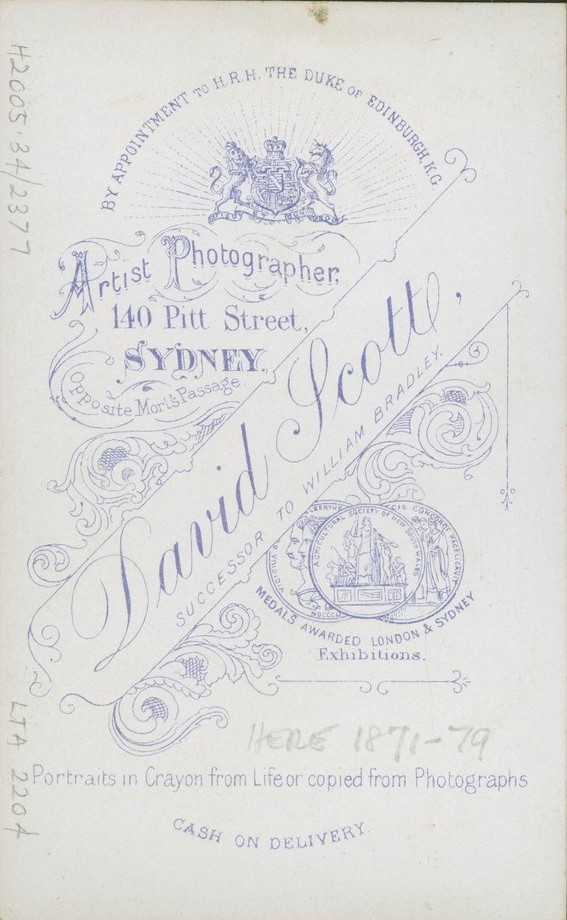 H2005.34/2377
BY APPOINTMENT TO H.R.H. THE DUKE OF EDINBURGH, K.G.
Artist Photographer,
140 Pitt Street,
SYDNEY.
Opposite Mort's Passage.
David Scott,
SUCCESSOR TO WILLIAM BRADLEY.
AGRICULTURAL SOCIETY OF NEW SOUTH WALES
MEDALS AWARDED LONDON & SYDNEY
Exhibitions.
HERE 1871-79
LTA 2204
Portraits in Crayon from Life or copied from Photographs
CASH ON DELIVERY.